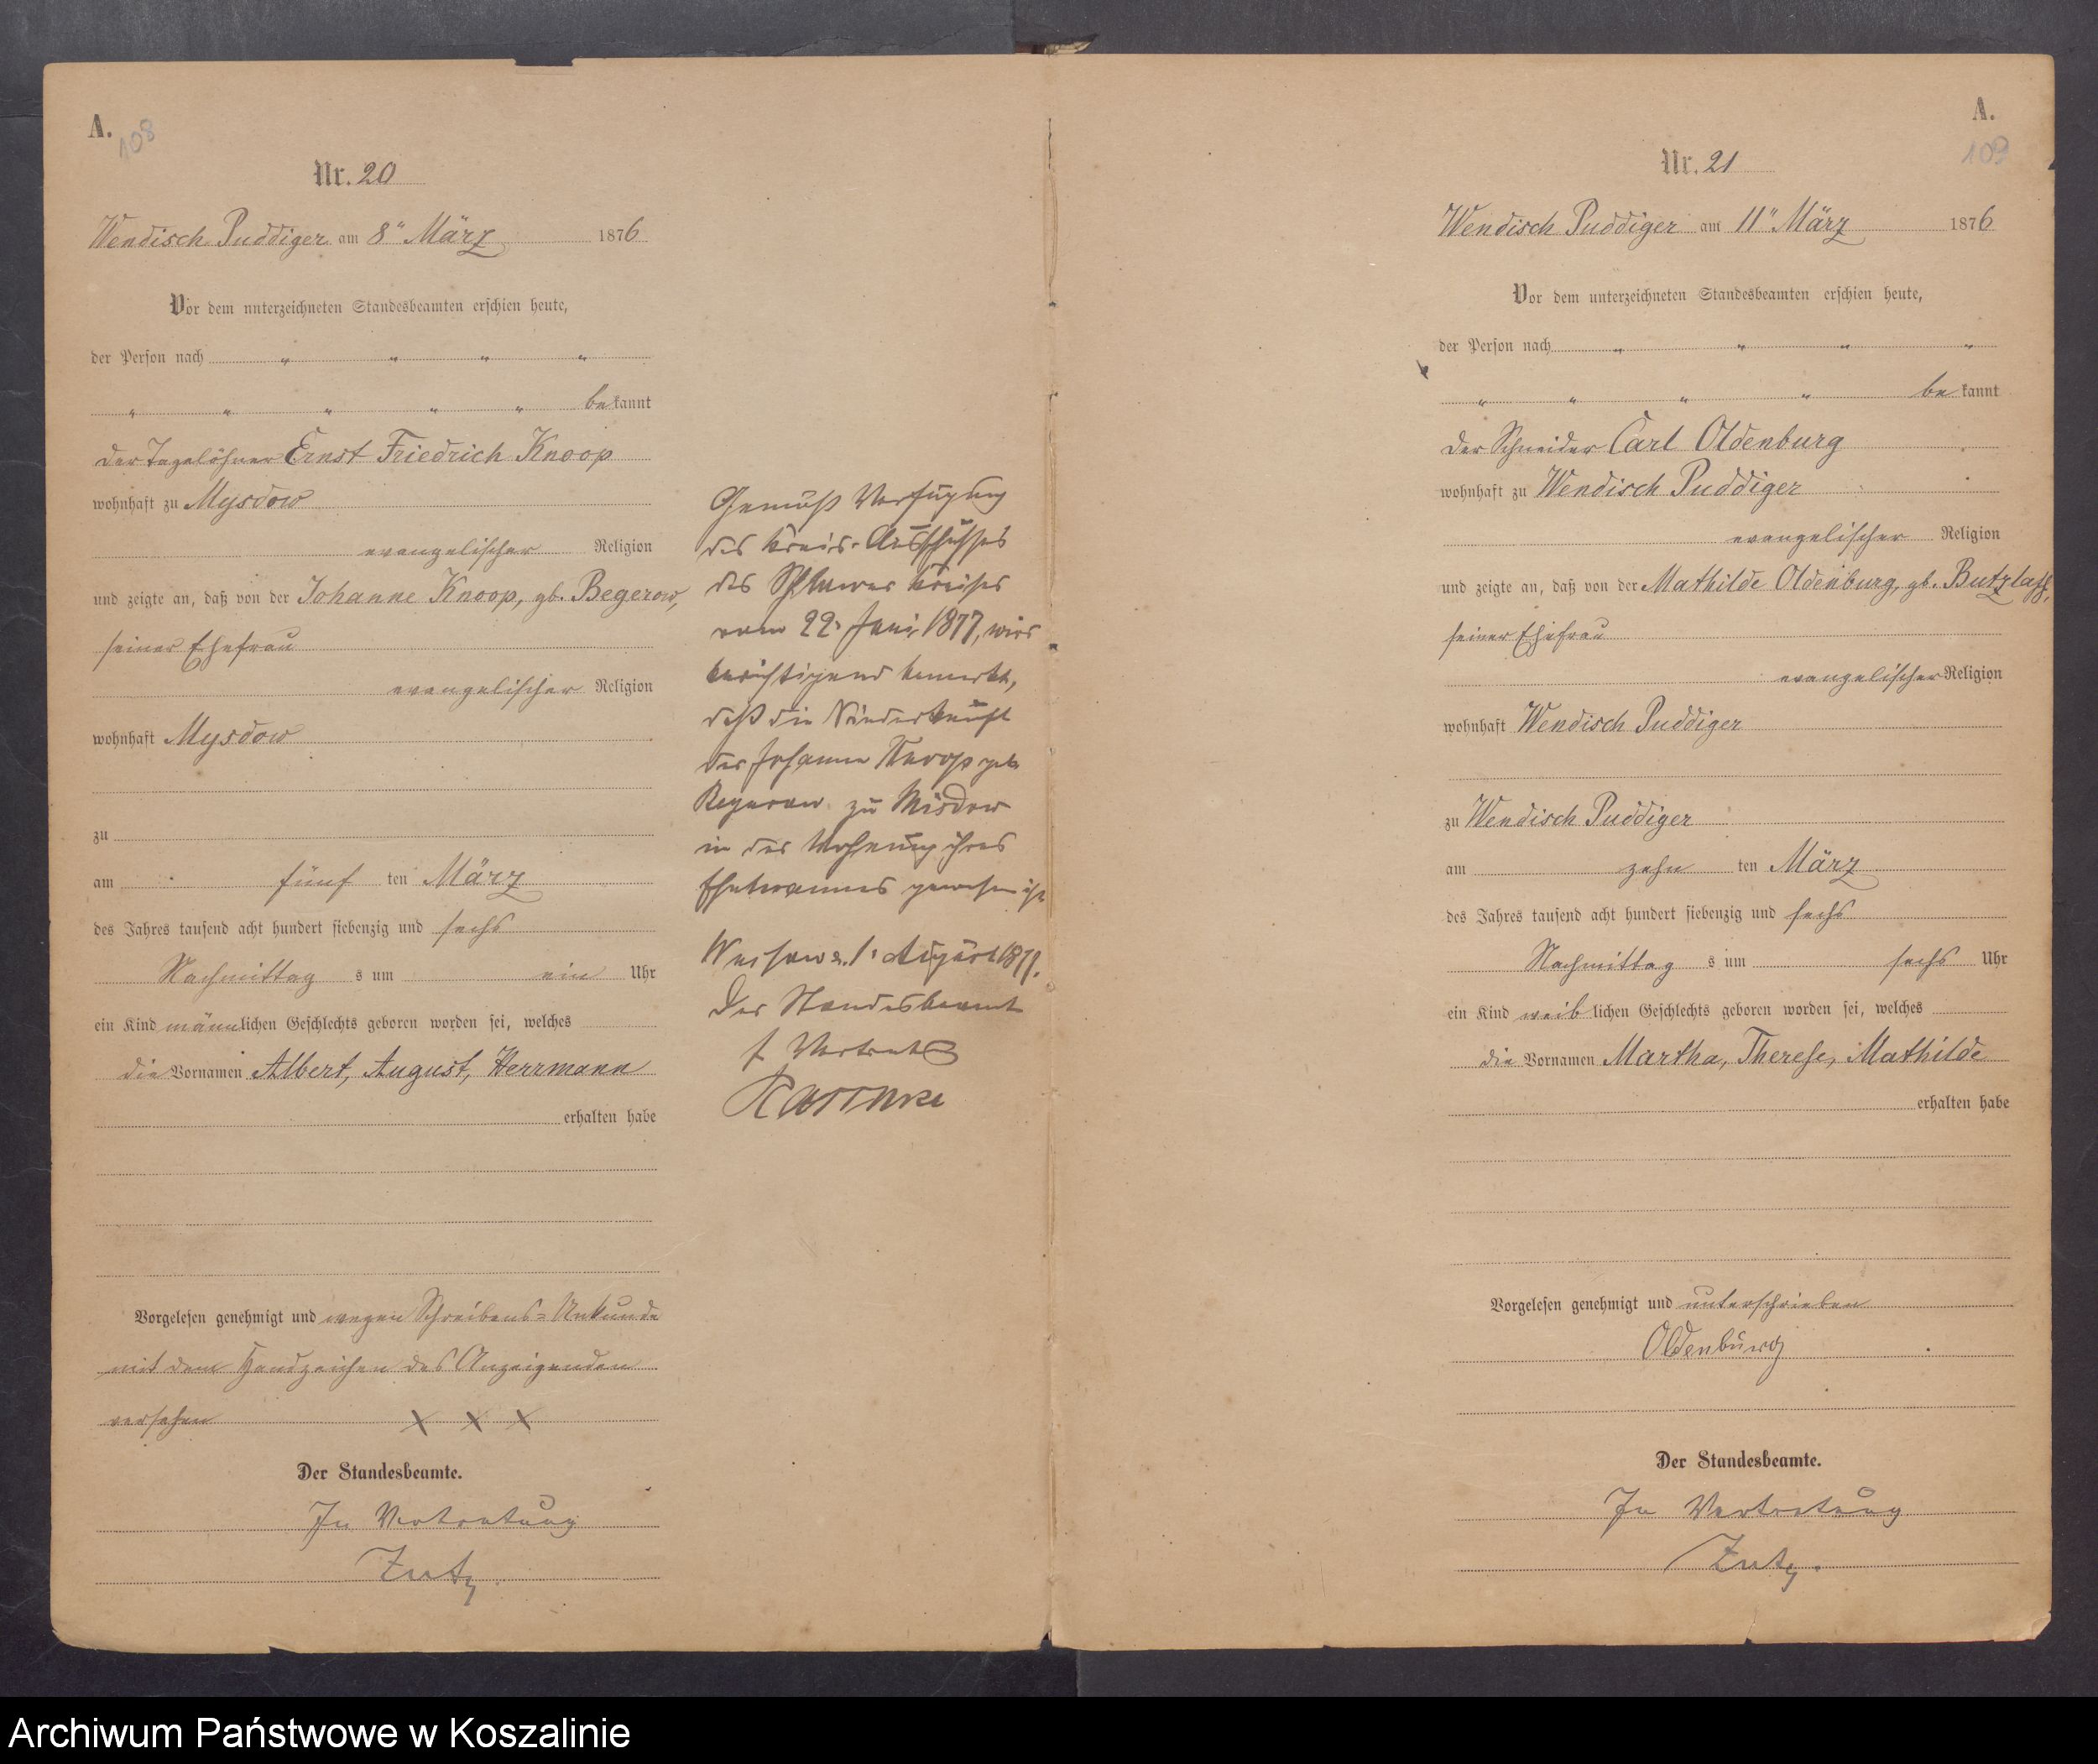 A.
108
Nr. 20
Wendisch Puddiger am 8" März 1876
Vor dem unterzeichneten Standesbeamten erschien heute,
der Person nach " " " "
" " " " " bekannt
der Tagelöhner Ernst Friedrich Knoop
wohnhaft zu Mysdow
evangelischer Religion
und zeigte an, daß von der Johanne Knoop, gb. Begerow,
seiner Ehefrau
evangelischer Religion
wohnhaft Mysdow
zu
am fünf ten März
des Jahres tausend acht hundert siebenzig und sechs
Nachmittag s um ein Uhr
ein Kind männlichen Geschlechts geboren worden sei, welches
die Vornamen Albert, August, Herrmann
erhalten habe
Vorgelesen genehmigt und wegen Schreibens-Unkunde
mit dem Handzeichen des Anzeigenden
versehen X X X
Der Standesbeamte.
In Vertretung
Zutz.
Gemäß Verfügung
des Kreis-Ausschusses
des Schlawer Kreises
vom 22. Juni 1877, wird
berichtigend bemerkt,
daß die Niederkunft
der Johanne Knoop geb
Begerow zu Misdow
in der Wohnung ihres
Ehemannes gewesen ist
1. August 1877.
Der Standesbeamte
A.
109
Nr. 21
Wendisch Puddiger am 11" März 1876
Vor dem unterzeichneten Standesbeamten erschien heute,
der Person nach " " " "
" " " " be kannt
der Schneider Carl Oldenburg
wohnhaft zu Wendisch Puddiger
evangelischer Religion
und zeigte an, daß von der Mathilde Oldenburg, gb. Butzlaff,
seiner Ehefrau
evangelischer Religion
wohnhaft Wendisch Puddiger
zu Wendisch Puddiger
am zehn ten März
des Jahres tausend acht hundert siebenzig und sechs
Nachmittag s um sechs Uhr
ein Kind weib lichen Geschlechts geboren worden sei, welches
die Vornamen Martha, Therese, Mathilde
erhalten habe
Vorgelesen genehmigt und unterschrieben
Oldenburg
Der Standesbeamte.
In Vertretung
Zutz.
Archiwum Państwowe w Koszalinie